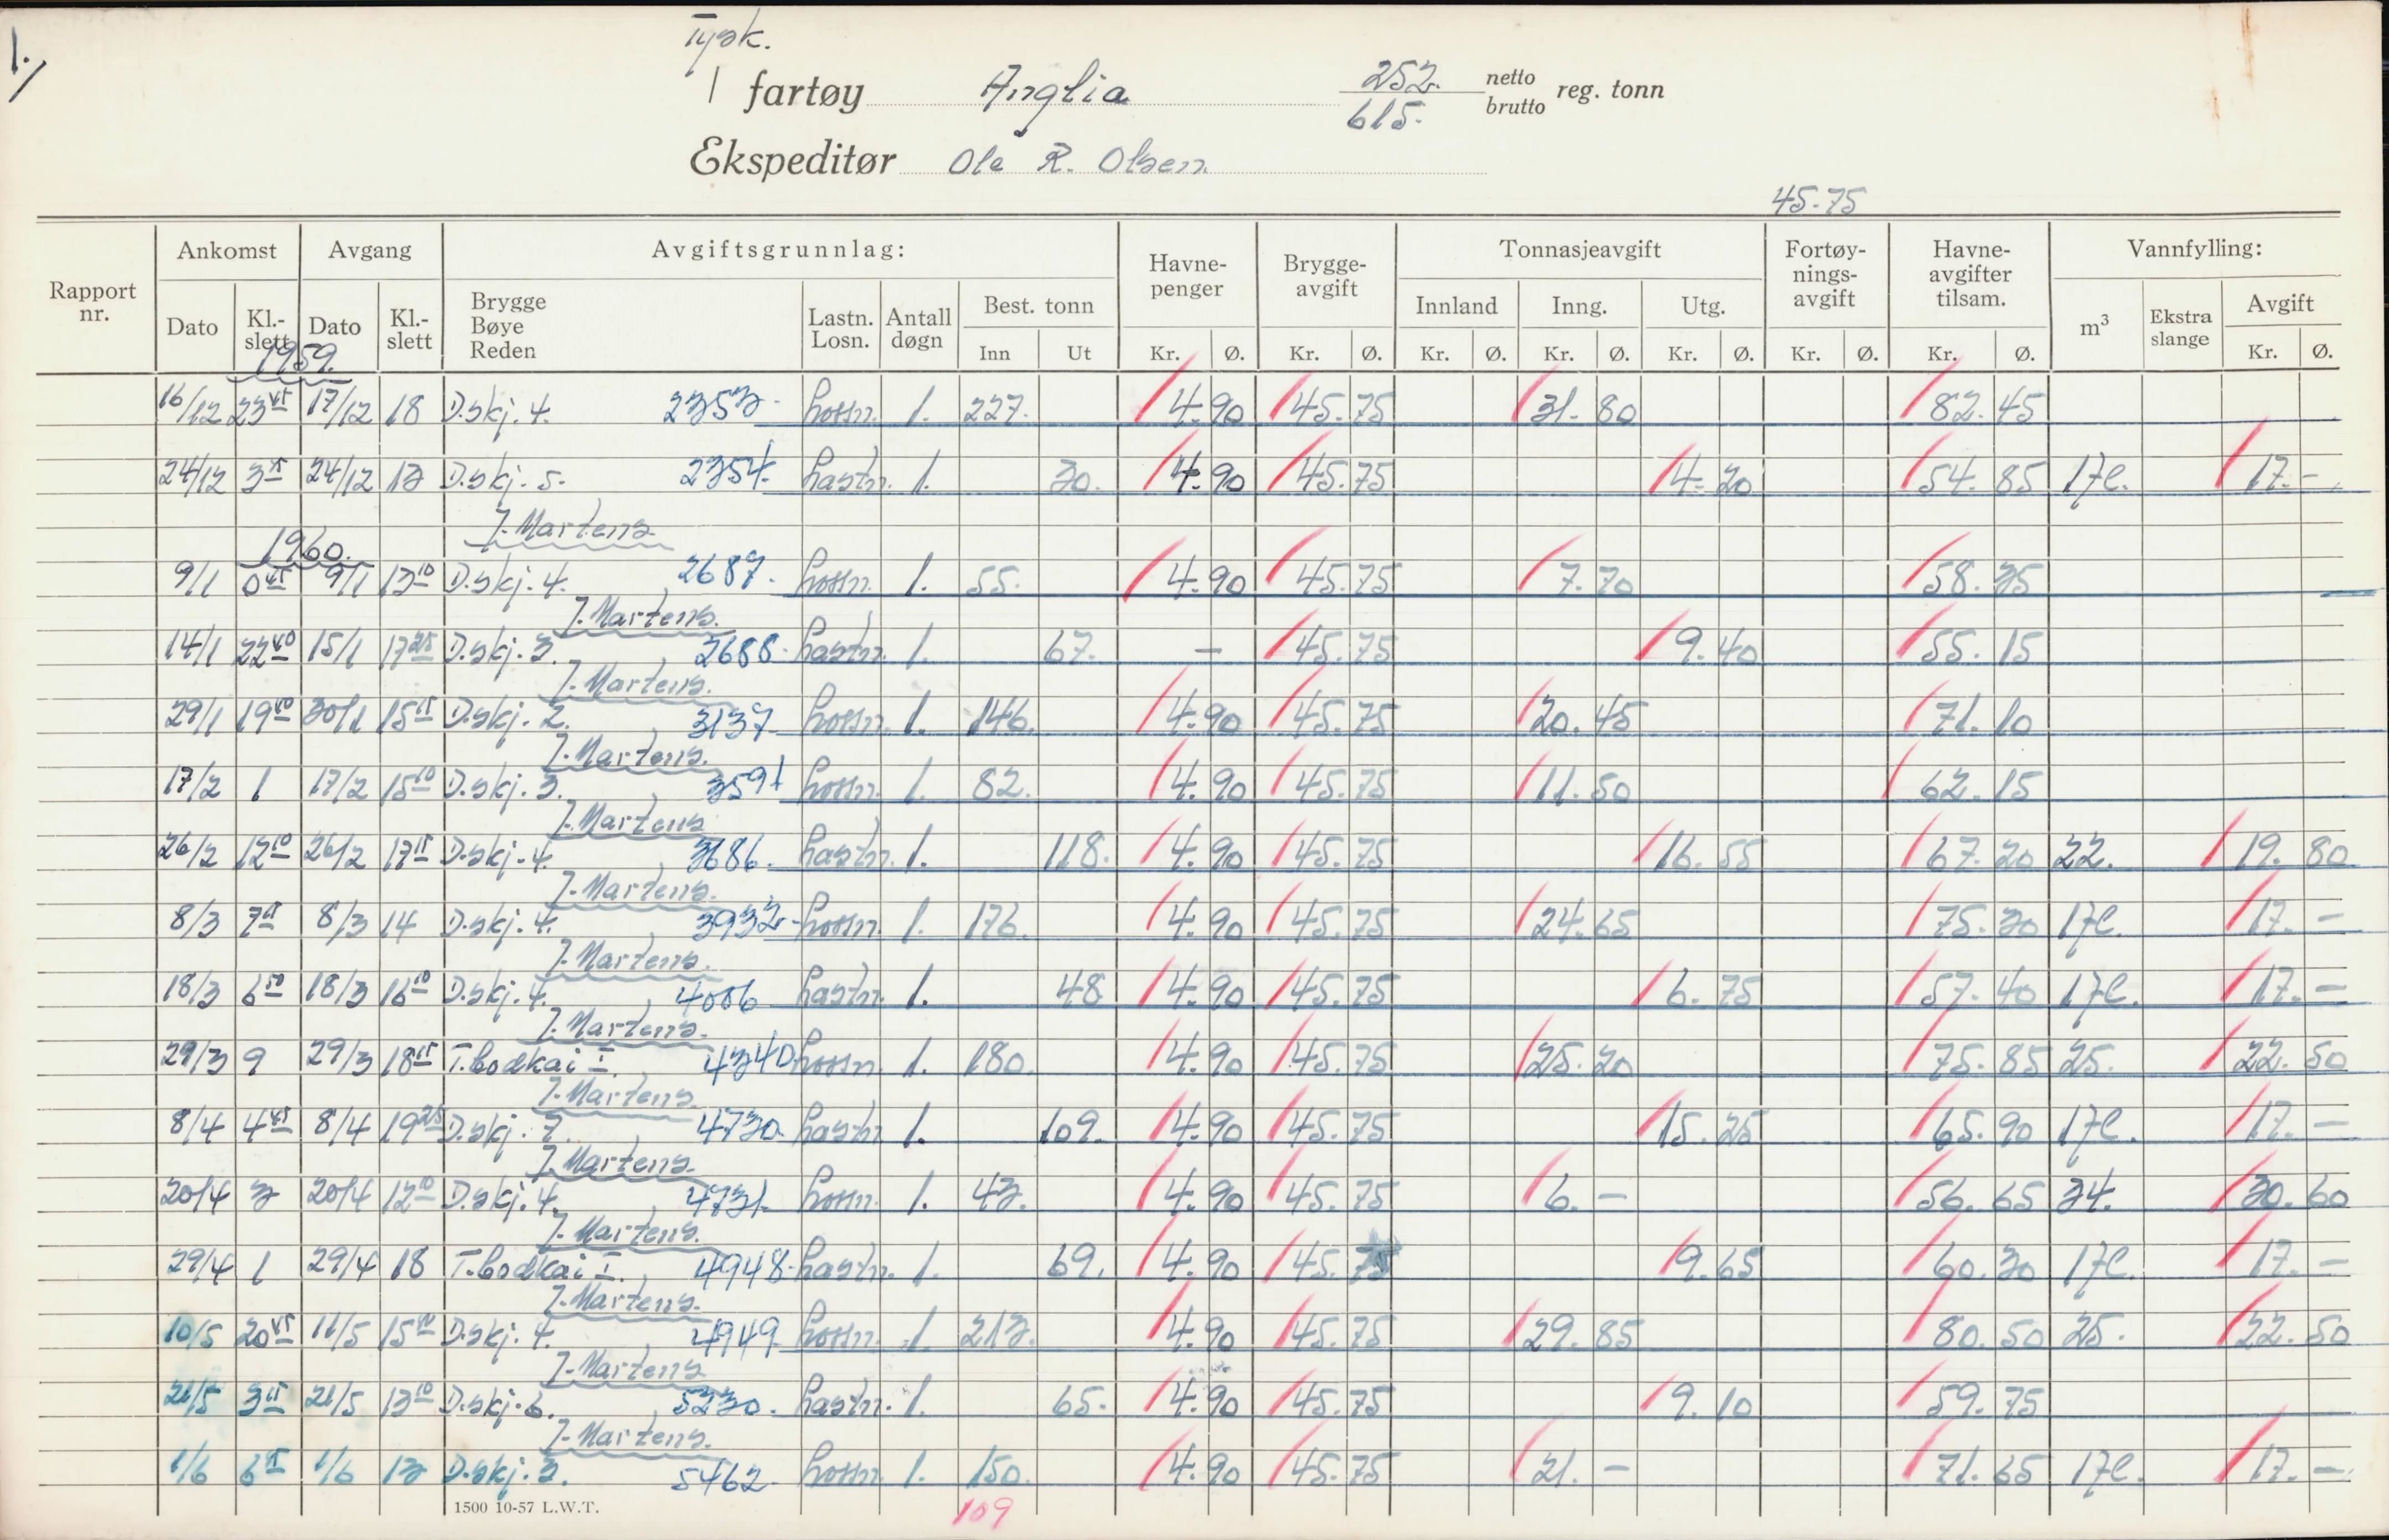 1.
Tysk.
1 fartøy Anglia 252. netto
615. brutto reg. tonn
Ekspeditør Ole R. Olsen.
45.75
Rapport nr. Ankomst Avgang Avgiftsgrunnlag: Havne-penger Brygge-avgift Tonnasjeavgift Fortøy-nings-avgift Havne-avgifter tilsam. Vannfylling:
Dato Kl.-slett Dato Kl.-slett Brygge Bøye Reden Lastn. Losn. Antall døgn Best. tonn Innland Inng. Utg. m³ Ekstra slange Avgift
Inn Ut Kr. Ø. Kr. Ø. Kr. Ø. Kr. Ø. Kr. Ø. Kr. Ø. Kr. Ø. Kr. Ø.
1959.
16/12 23 45 17/12 18 D.skj. 4. 2353. Lossn. 1. 227. 4.90 45.75 31.80 82.45
24/12 3 15 24/12 13 D.skj. 5. 2354. Lastn. 1. 30. 4.90 45.75 4.20 54.85 17C. 17.-
J. Martens.
1960.
9/1 0 45 9/1 13 10 D.skj. 4. 2687. Lossn. 1. 55. 4.90 45.75 7.70 58.35
J. Martens.
14/1 22 40 15/1 17 25 D.skj. 3. 2688. Lastn. 1. 67. - 45.75 9.40 55.15
J. Martens.
29/1 19 50 30/1 15 15 D.skj. 2. 3137 Lossn. 1. 146. 4.90 45.75 20.45 71.10
J. Martens.
17/2 1 17/2 15 10 D.skj. 3. 3591 Lossn. 1. 82. 4.90 45.75 11.50 62.15
J. Martens
26/2 12 10 26/2 17 15 D.skj. 4. 3686. Lastn. 1. 118. 4.90 45.75 16.55 67.20 22. 19.80
J. Martens.
8/3 7 8/3 14 D.skj. 4. 3932. Lossn. 1. 176. 4.90 45.75 24.65 75.30 17C. 17.-
J. Martens.
18/3 6 50 18/3 16 10 D.skj. 4. 4006 Lastn. 1. 48 4.90 45.75 6.75 57.40 17C. 17.-
J. Martens.
29/3 9 29/3 18 15 T.bodkai I. 4340. Lossn. 1. 180. 4.90 45.75 25.20 75.85 25. 22.50
J. Martens.
8/4 4 45 8/4 19 25 D.skj. 7. 4730. Lastn 1. 109. 4.90 45.75 15.25 65.90 17C. 17.-
J. Martens.
20/4 3 20/4 12 10 D.skj. 4. 4731. Lossn. 1. 43. 4.90 45.75 6.- 56.65 34. 30.60
J. Martens.
29/4 1 29/4 18 T.bodkai I. 4948. Lastn. 1. 69. 4.90 45.75 9.65 60.30 17C. 17.-
J. Martens.
10/5 20 45 11/5 15 D.skj. 4. 4949. Lossn. 1 213. 4.90 45.75 29.85 80.50 25. 22.50
J. Martens
21/5 3 15 21/5 13 10 D.skj. 6. 5230. Lastn. 1. 65. 4.90 45.75 9.10 59.75
J. Martens.
1/6 6 15 1/6 13 D.skj. 3. 5462. Lossn 1. 150. 4.90 45.75 21.- 71.65 17C. 17.-
1500 10-57 L.W.T. 109